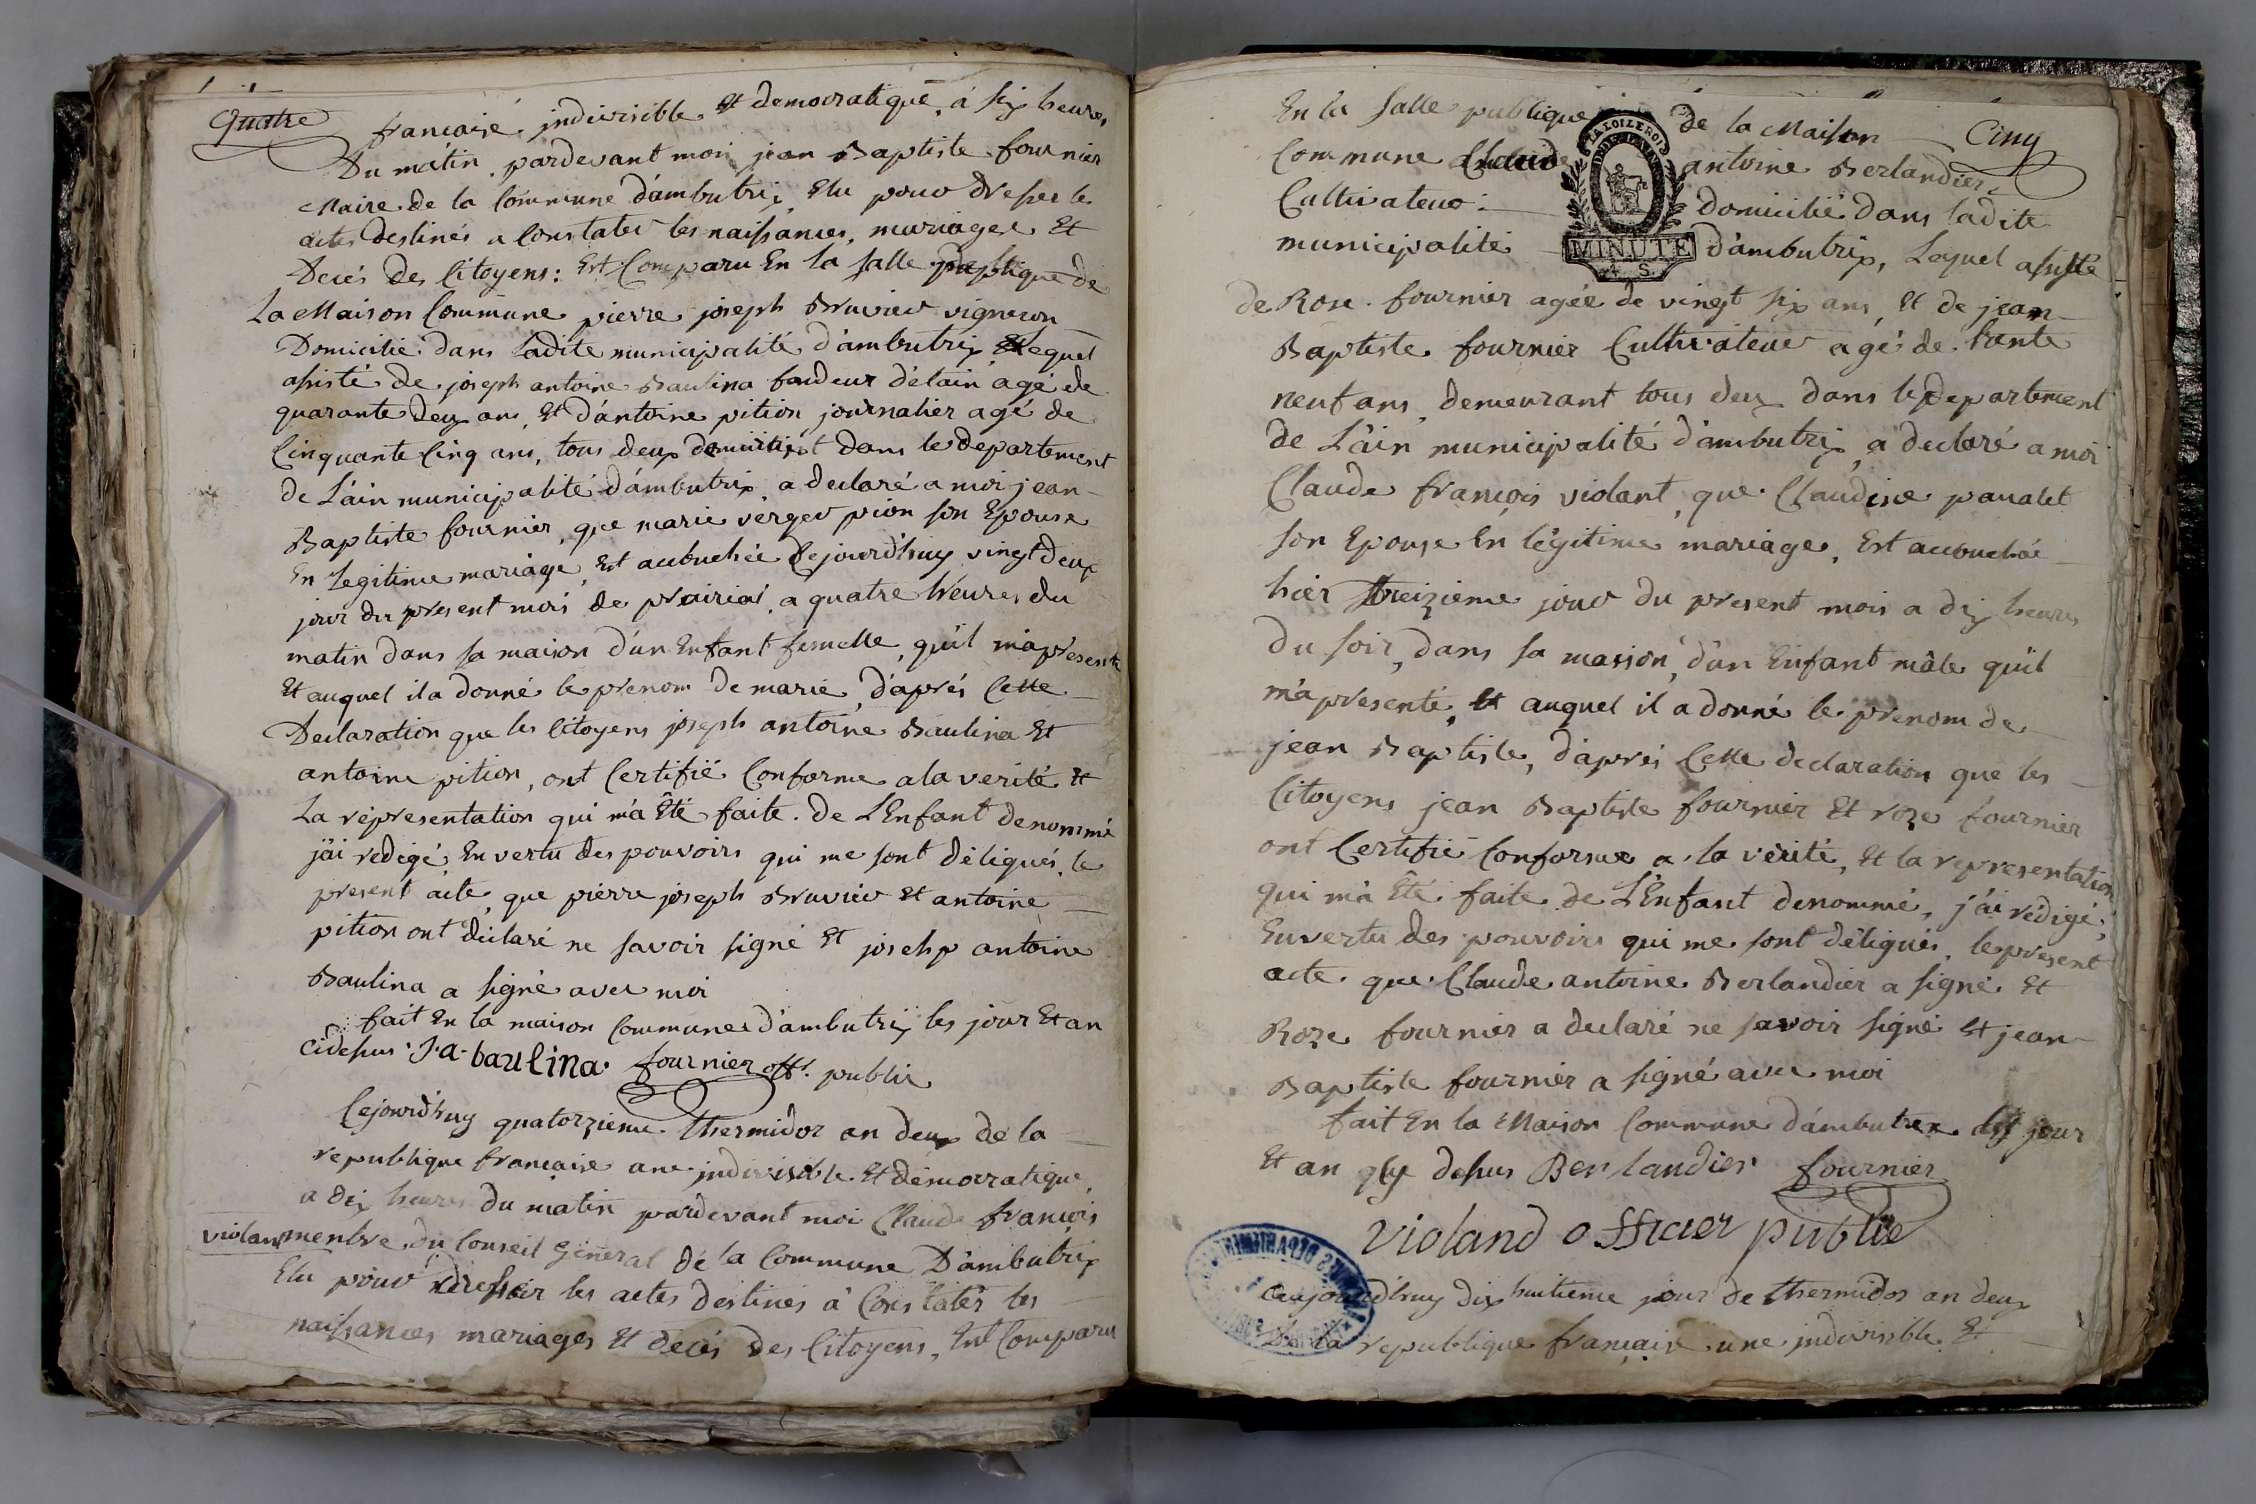 Quatre
francaise indivisible Et democratique, á six heures
Du matin, pardevant moi jean Baptiste fournier
Maire de la Commune d'ambutrix, Elu pour dresser les
actes destinés a Constater les naissances, mariages Et
Decés des Citoyens : Est Comparu En la salle publique de
La Maison Commune pierre joseph vigneron
Domicilié dans ladite municipalité d'ambutrix lequel
assisté de joseph antoine Baulina fondeur d'étain agé de
quarante deux ans, Et d'antoine pition journalier agé de
Cinquante Cinq ans, tous deux dans le departement
de L'ain municipalité d'ambutrix, a declaré a moi jean-
Baptiste fournier, que marie pion son Epouse
En Legitime mariage, Est accouchée Cejourd'huy vingt deux
jour du present mois de prairial, a quatre heures du
matin dans sa maison d'un Enfant femelle, qu'il m'a presenté
Et auquel il a donné le prenom de marie, d'aprés Cette
Declaration que les Citoyens joseph antoine Baulina Et
antoine pition, ont Certifié Conforme a la verité Et
La représentation qui m'a Eté faite. de L'Enfant denommé
j'ai redigé, En vertu des pouvoirs qui me sont déligués, le
present acte, que pierre joseph Et antoine
pition ont déclaré ne savoir signé Et josehp antoine
Baulina a signé avec moi
fait En la maison Commune d'ambutrix les jour Et an
cidessus. J. a. baulina. fournier off. public
Cejourd'huy quatorzieme. thermidor an deux de la
republique francaise une indivisible Et démocratique,
a dix heures du matin pardevant moi Claude françois
violand membre du Conseil Géneral de la Commune D'ambutrix
Elu pour dresser les actes destinés á Constater les
naissances mariages Et decés des Citoyens, Est Comparu
En la salle publique de la Maison Cinq
Commune Claude antoine Berlandier
Cultivateur domicilié dans ladite
municipalité d'ambutrix, Lequel assisté
LA LOI LE ROI
MINUTE
4 S
de Rose fournier agée de vingt six ans, Et de jean-
Baptiste fournier Cultivateur agé de neuf ans, demeurant tous deux dans le departement
de L'ain municipalité d'ambutrix, a declaré a moi
Claude françois violant, que Claudine panalet
son Epouse En légitime mariage, Est accouchée
hier treizieme jour du present mois a dix heures
Du soir, dans sa maision, d'un Enfant mâle qu'il
m'a presenté, Et auquel il a donné le prenom de
jean Baptiste, d'aprés Cette declaration que les
Citoyens jean Baptiste fournier Et roze fournier
ont Certifié Conforme a la vérité, Et la representation
qui m'a Eté faite de L'Enfant denommé, j'ai rédigé,
En vertu des pouvoirs qui me sont déligués, le present
acte. que Claude antoine Berlandier a signé Et
Roze fournier a declaré ne savoir signé Et jean-
Baptiste fournier a signé avec moi
fait En la Maison Commune d'ambutrix les jour
Et an que dessus Berlandier fournier
violand officier public
Cejourd'huy dix huitieme jour de thermidor an deux
De la republique française une indivisible Et